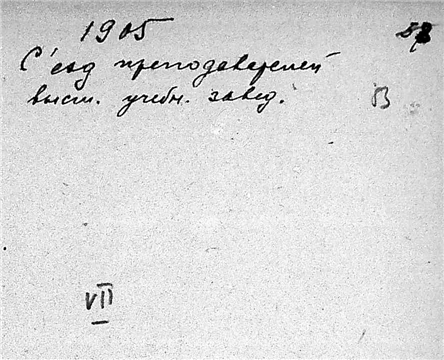 1905
С'езд преподавателей
высш. учебн. завед.
В
VII